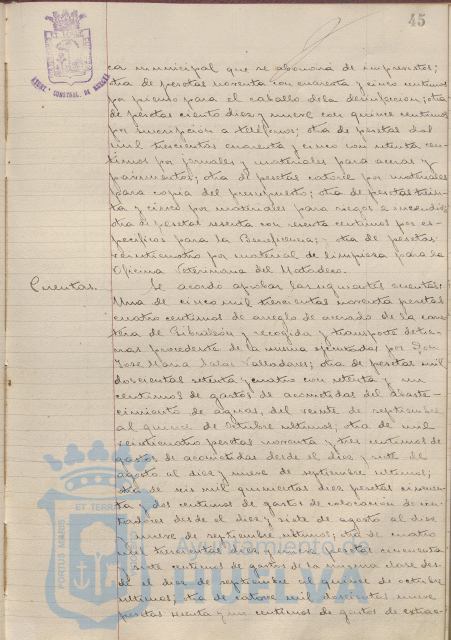 45
ca municipal que se abonará de imprevistos;
otra de pesetas noventa con cuarenta y cinco centimos
por pienso para el caballo de la desinfeccion; otra
de pesetas ciento diez y nueve con quince centimos
por inscripción a telefonos; otra de pesetas dos
mil trescientas cuarenta y cinco con ochenta cen-
timos por jornales y materiales para aceras y
pavimentos; otra de pesetas catorce por materiales
para copia del presupuesto; otra de pesetas trein-
ta y cinco por materiales para riegos e incendios;
otra de pesetas sesenta con centimos por es-
pecificos para la Beneficencia; y otra de pesetas
veinticuatro por material de limpieza para la
Oficina Veterinaria del Matadero.
Cuentas. Se acordó aprobar las siguientes cuentas:
Una de cinco mil trescientas noventa pesetas
cuatro centimos de arreglo de acerado de la carre-
tera de Gibraleón y recogida y transporte de tie-
rras procedente de la misma ejecutadas por Don
José Maria Salas Valladares; otra de pesetas mil
doscientas setenta y cuatro con y un
centimos de gastos de acometidas del abaste-
cimiento de aguas, del veinte de septiembre
al quince de Octubre ultimos; otra de mil
veinticuatro pesetas noventa y tres centimos de
gastos de acometidas desde el diez y siete de
agosto al diez y nueve de septiembre ultimos;
otra de seis mil quinientas diez pesetas cincuen-
ta y dos centimos de gastos de colocación de con-
tadores desde el diez y siete de agosto al diez
y nueve de septiembre ultimos; otra de cuatro
mil trescientas diez y nueve pesetas cincuenta
y siete centimos de gastos de la misma clase des-
de el diez de septiembre al quince de octubre
ultimos; otra de catorce mil doscientas nueve
pesetas sesenta y un centimos de gastos de extrac-
PORTUS MARIS ET TERRAE
Ayuntamiento de
HUELVA